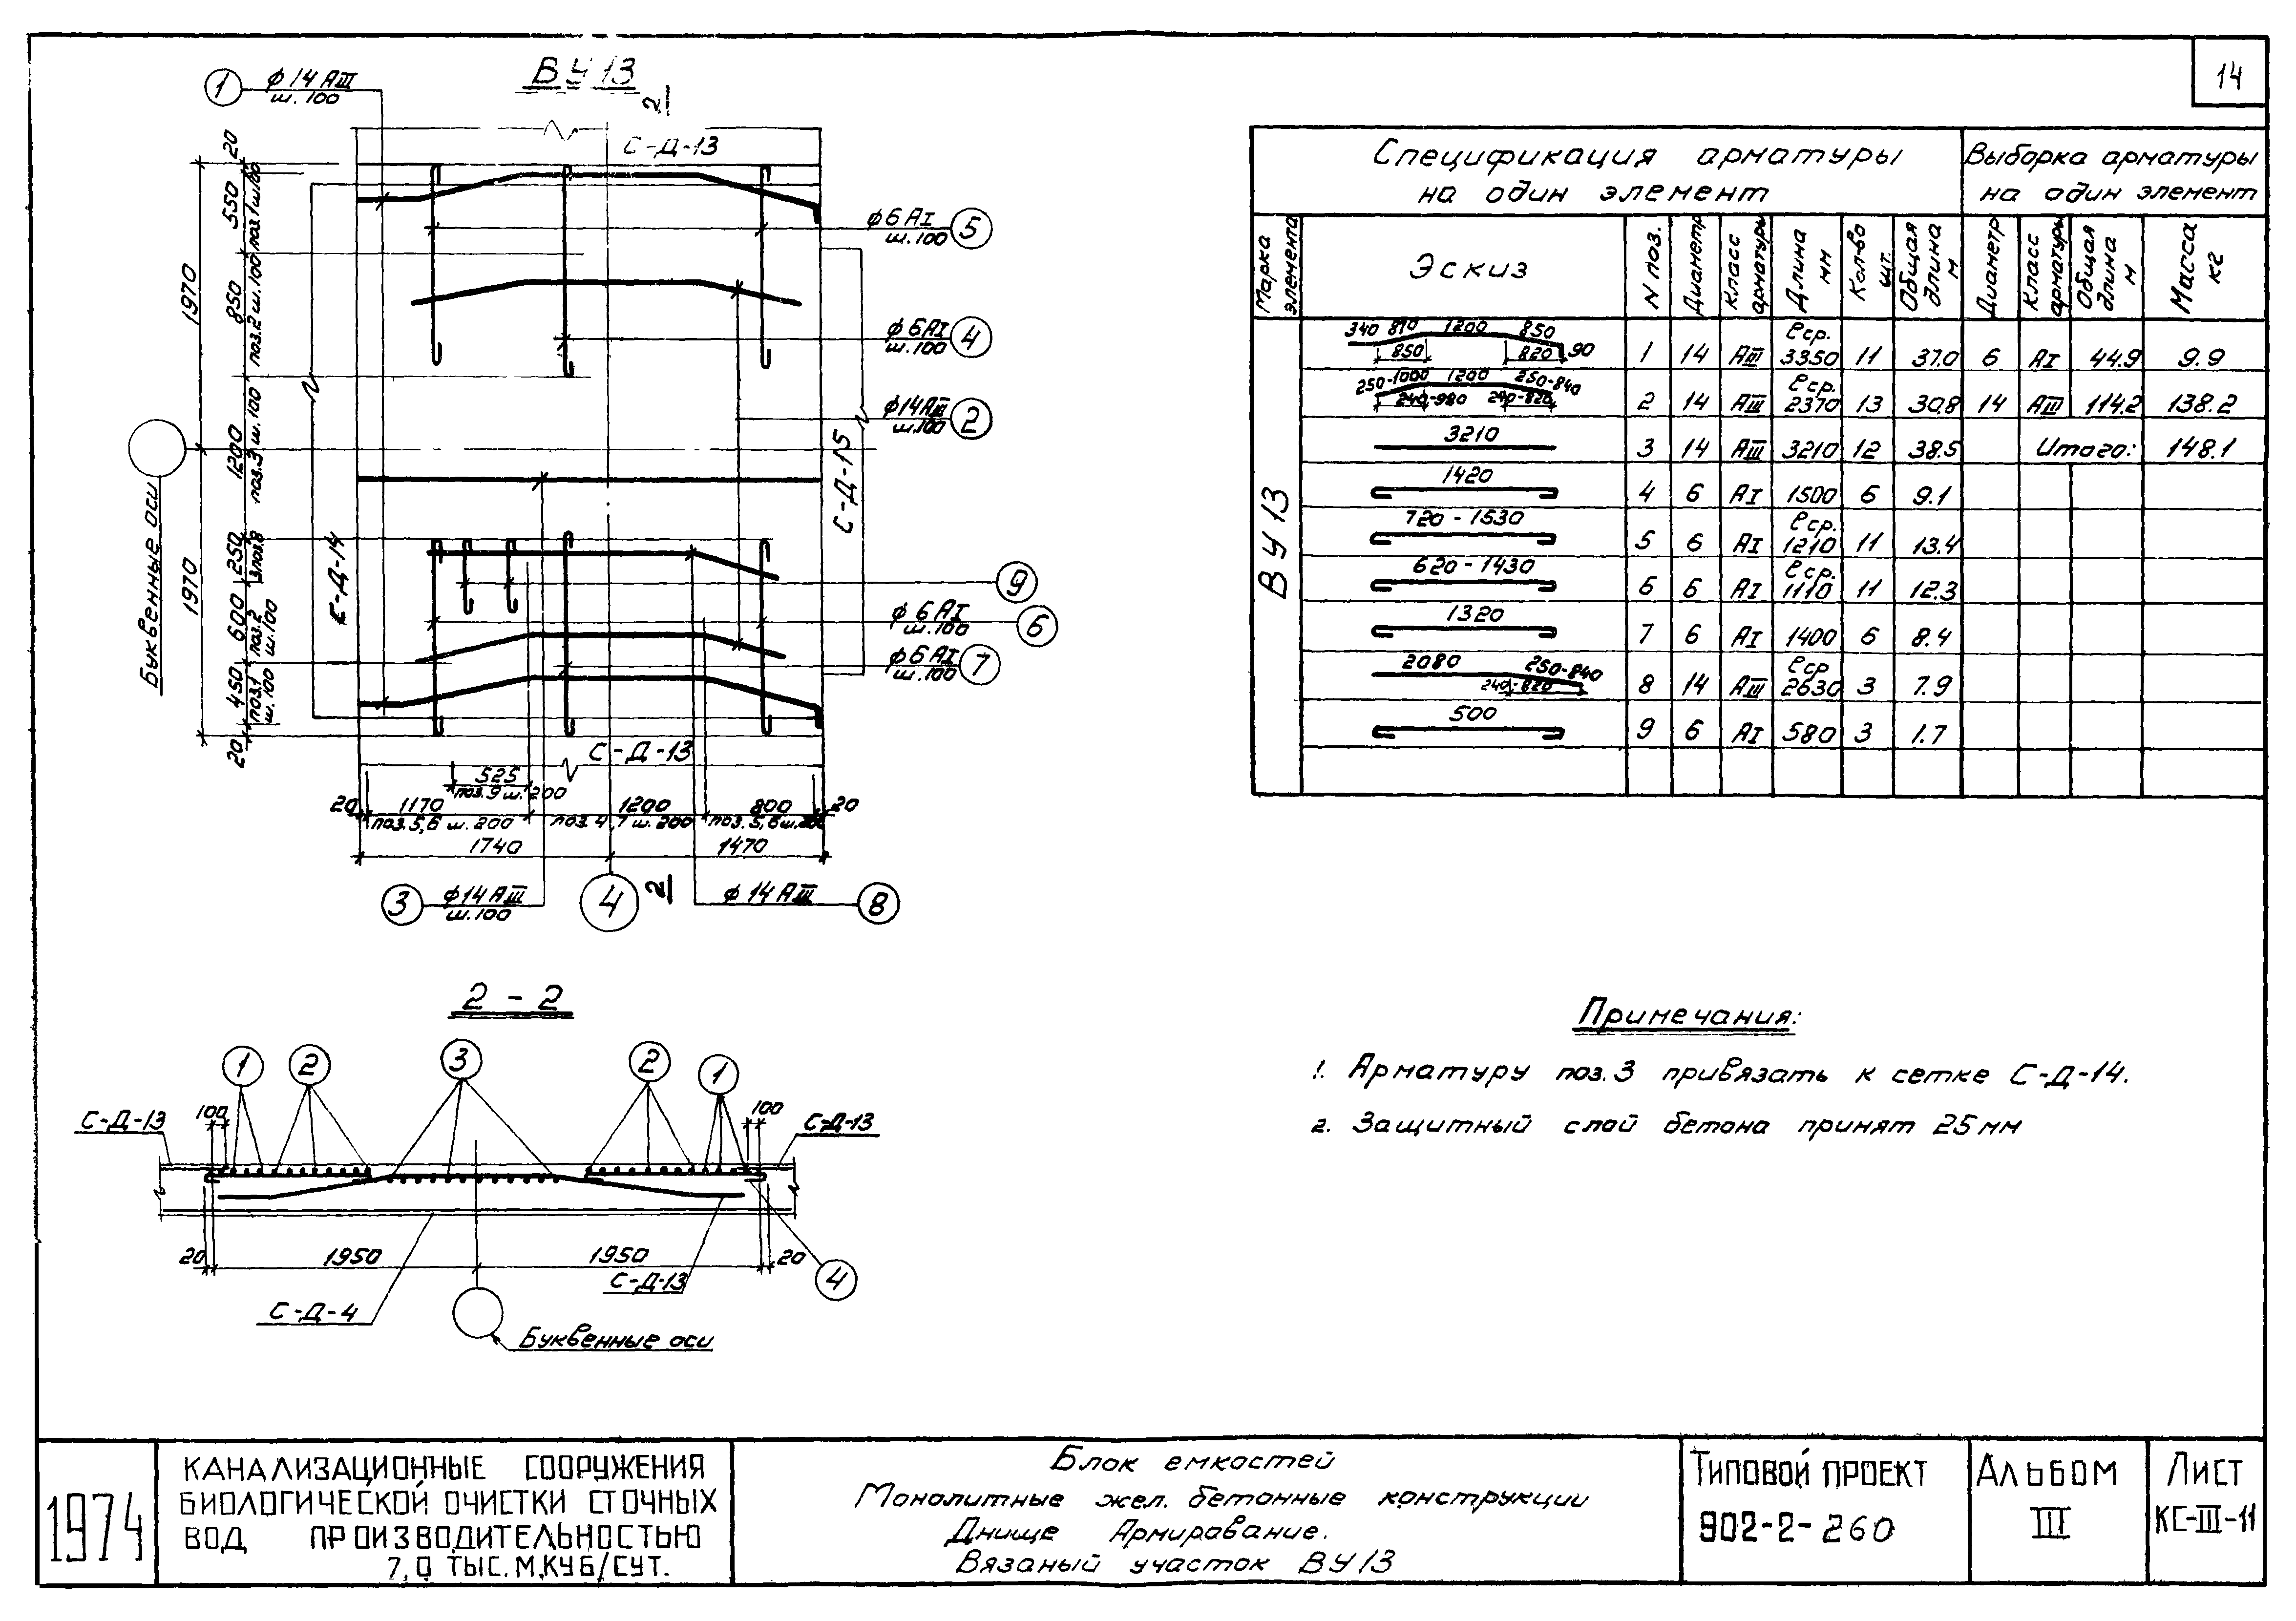 14
ВУ13
1
ф14 АIII
ш. 100
2
С-Д-13
20
550
поз.1 ш.100
850
поз.2 ш.100
1200
поз.3 ш.100
250
600
поз.2
ш.100
450
поз.1
ш.100
20
1970
1970
Буквенные оси
С-Д-14
С-Д-15
ф6 АI
ш.100
5
ф6 АI
ш.100
4
ф14 АIII
ш.100
2
9
ф6 АI
ш.100
6
ф6 АI
ш.100
7
С-Д-13
525
поз.9 ш.200
20
1170
1200
800
20
поз.5,6 ш.200
поз.4,7 ш.200
поз.5,6 ш.200
1740
1470
3
ф14 АIII
ш.100
4
2
ф14 АIII
8
2 - 2
1
2
3
2
1
С-Д-13
100
100
С-Д-13
20
1950
1950
20
С-Д-13
4
С-Д-4
Буквенные оси
Спецификация арматуры
на один элемент
Выборка арматуры
на один элемент
Марка элемента
Эскиз
N поз.
Диаметр
Класс арматуры
Длина мм
Кол-во шт.
Общая длина м
Диаметр
Класс арматуры
Общая длина м
Масса кг
ВУ13
340 870 1200 850
850 820 90
1 14 АIII ℓср. 3350 11 37.0 6 АI 44.9 9.9
250-1000 1200 250-840
240-980 240-820
2 14 АIII ℓср. 2370 13 30.8 14 АIII 114.2 138.2
3210
3 14 АIII 3210 12 38.5 Итого: 148.1
1420
4 6 АI 1500 6 9.1
720 - 1530
5 6 АI ℓср. 1210 11 13.4
620 - 1430
6 6 АI ℓср. 1110 11 12.3
1320
7 6 АI 1400 6 8.4
2080 250-840
240-820
8 14 АIII ℓср 2630 3 7.9
500
9 6 АI 580 3 1.7
Примечания:
1. Арматуру поз. 3 привязать к сетке С-Д-14.
2. Защитный слой бетона принят 25 мм
1974
КАНАЛИЗАЦИОННЫЕ СООРУЖЕНИЯ
БИОЛОГИЧЕСКОЙ ОЧИСТКИ СТОЧНЫХ
ВОД ПРОИЗВОДИТЕЛЬНОСТЬЮ
7,0 ТЫС. М.КУБ/СУТ.
Блок емкостей
Монолитные жел. бетонные конструкции
Днище Армирование.
Вязаный участок ВУ13
ТИПОВОЙ ПРОЕКТ
902-2-260
АЛЬБОМ
III
ЛИСТ
КС-III-11